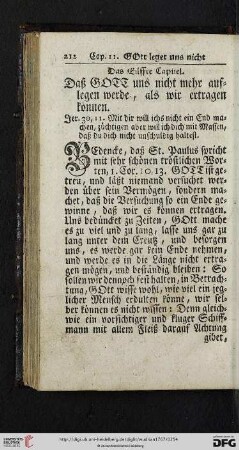 212 Cap. 11. GOtt leget uns nicht
Das Eilffte Capitel.
Daß GOTT uns nicht mehr auf-
legen werde, als wir ertragen
können.
Jer. 30, 11. Mit dir will ichs nicht ein End ma-
chen, züchtigen aber will ich dich mit Massen,
daß du dich nicht unschuldig haltest.
BEdencke, daß St. Paulus spricht
mit sehr schönen tröstlichen Wor-
ten, 1. Cor. 10. 13. GOTT ist ge-
treu, und läßt niemand versucht wer-
den über sein Vermögen, sondern ma-
chet, daß die Versuchung so ein Ende ge-
winne, daß wir es können ertragen.
Uns bedüncket zu Zeiten, GOtt mache
es zu viel und zu lang, lasse uns gar zu
lang unter dem Creutz, und besorgen
uns, es werde gar kein Ende nehmen,
und werde es in die Länge nicht ertra-
gen mögen, und beständig bleiben: So
sollen wir dennoch fest halten, in Betrach-
tung, GOtt wisse wohl, wie viel ein jeg-
licher Mensch erdulten könne, wir sel-
ber können es nicht wissen: Denn gleich-
wie ein vorsichtiger und kluger Schiff-
mann mit allem Fleiß darauf Achtung
gibet,